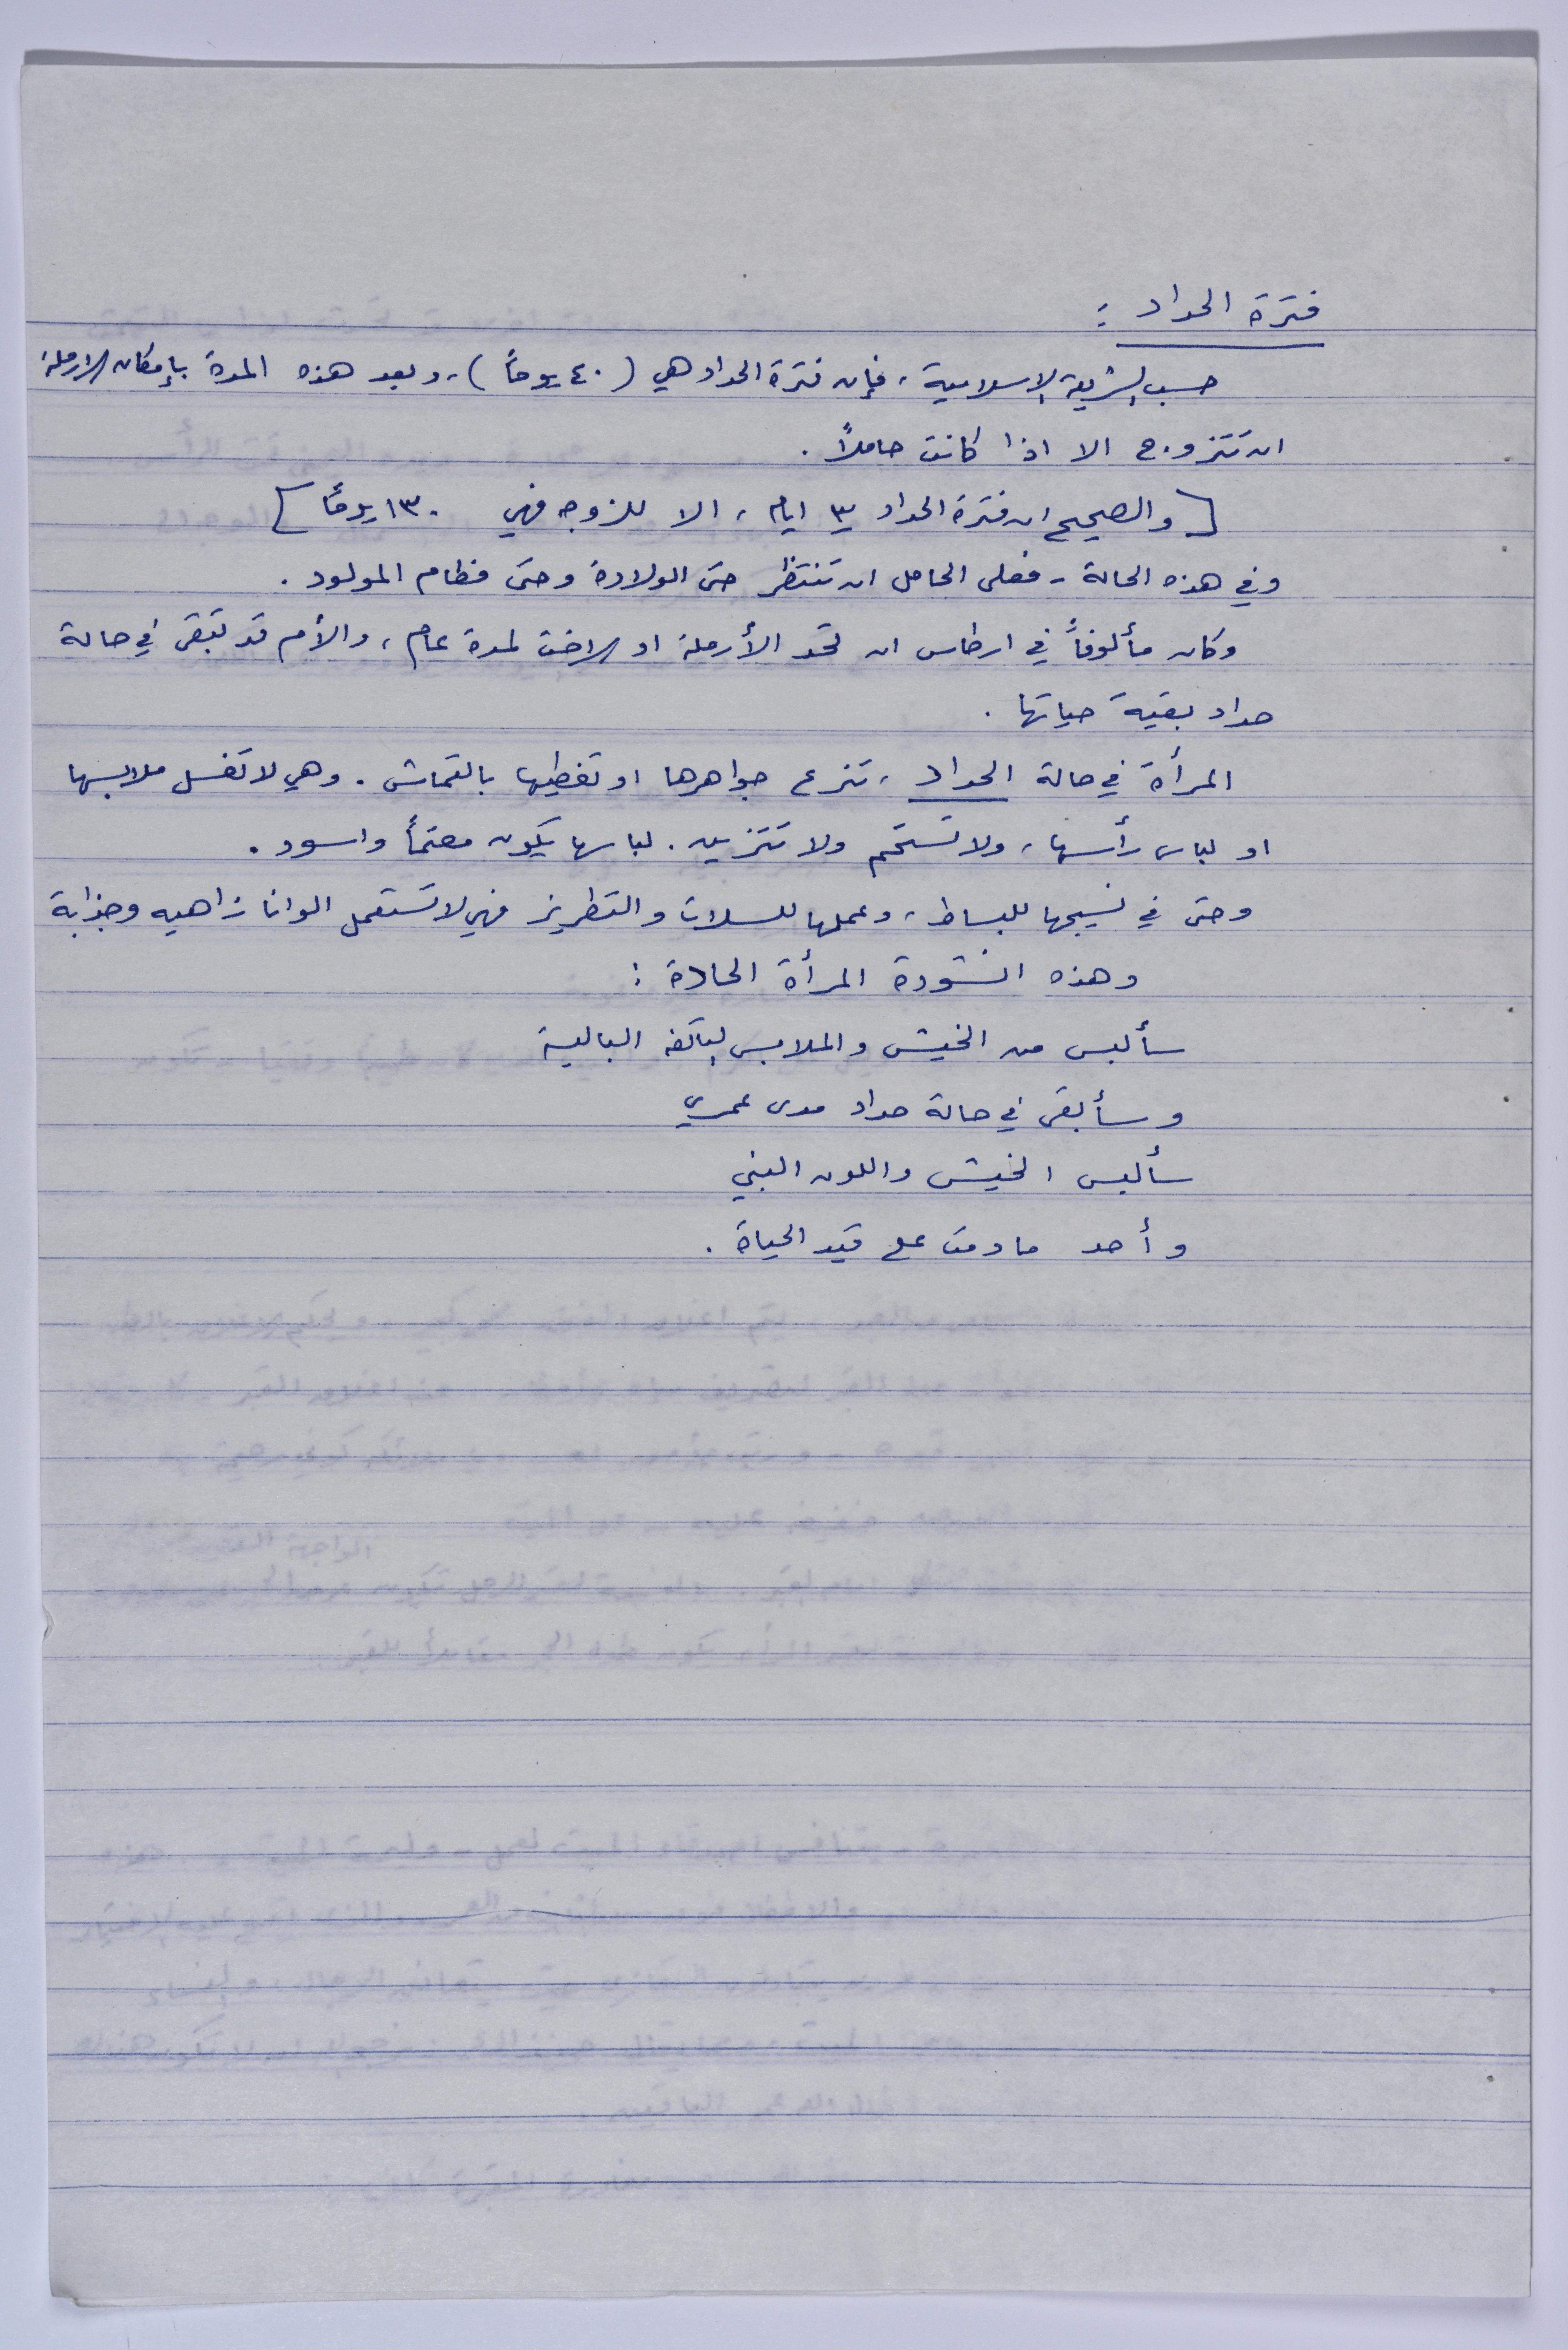 فترة الحداد :
حسب الشريعة الاسلامية ، فإن فترة الحداد هي (٤٠ يوماً) ، وبعد هذه المدة بإمكان الارملة
ان تتزوج الا اذا كانت حاملاً .
[والصحيح ان فترة الحداد ٣ ايام ، الا للزوجه فهي ١٣٠ يوماً]
وفي هذه الحالة - فعلى الحامل ان تنتظر حتى الولادة وحتى فطام المولود .
وكان مألوفاً في ارطاس ان تحد الأرملة او الاخت لمدة عام ، والأم قد تبقى في حالة
حداد بقية حياتها .
المرأة في حالة الحداد ، تنزع جواهرها او تغطيها بالقماش . وهي لا تغسل ملابسها
او لباس رأسها ، ولا تستحم ولا تتزين . لباسها يكون معتماً واسود .
وحتى في نسيجها للبساط ، وعملها للسلات والتطريز فهي لا تستعمل الوانا زاهيه وجذابة
وهذه انشودة المرأة الحادة :
سألبس من الخيش والملابس البالية
وسأبقى في حالة حداد مدى عمري
سألبس الخيش واللون البني
وأحد ما دمت على قيد الحياة .